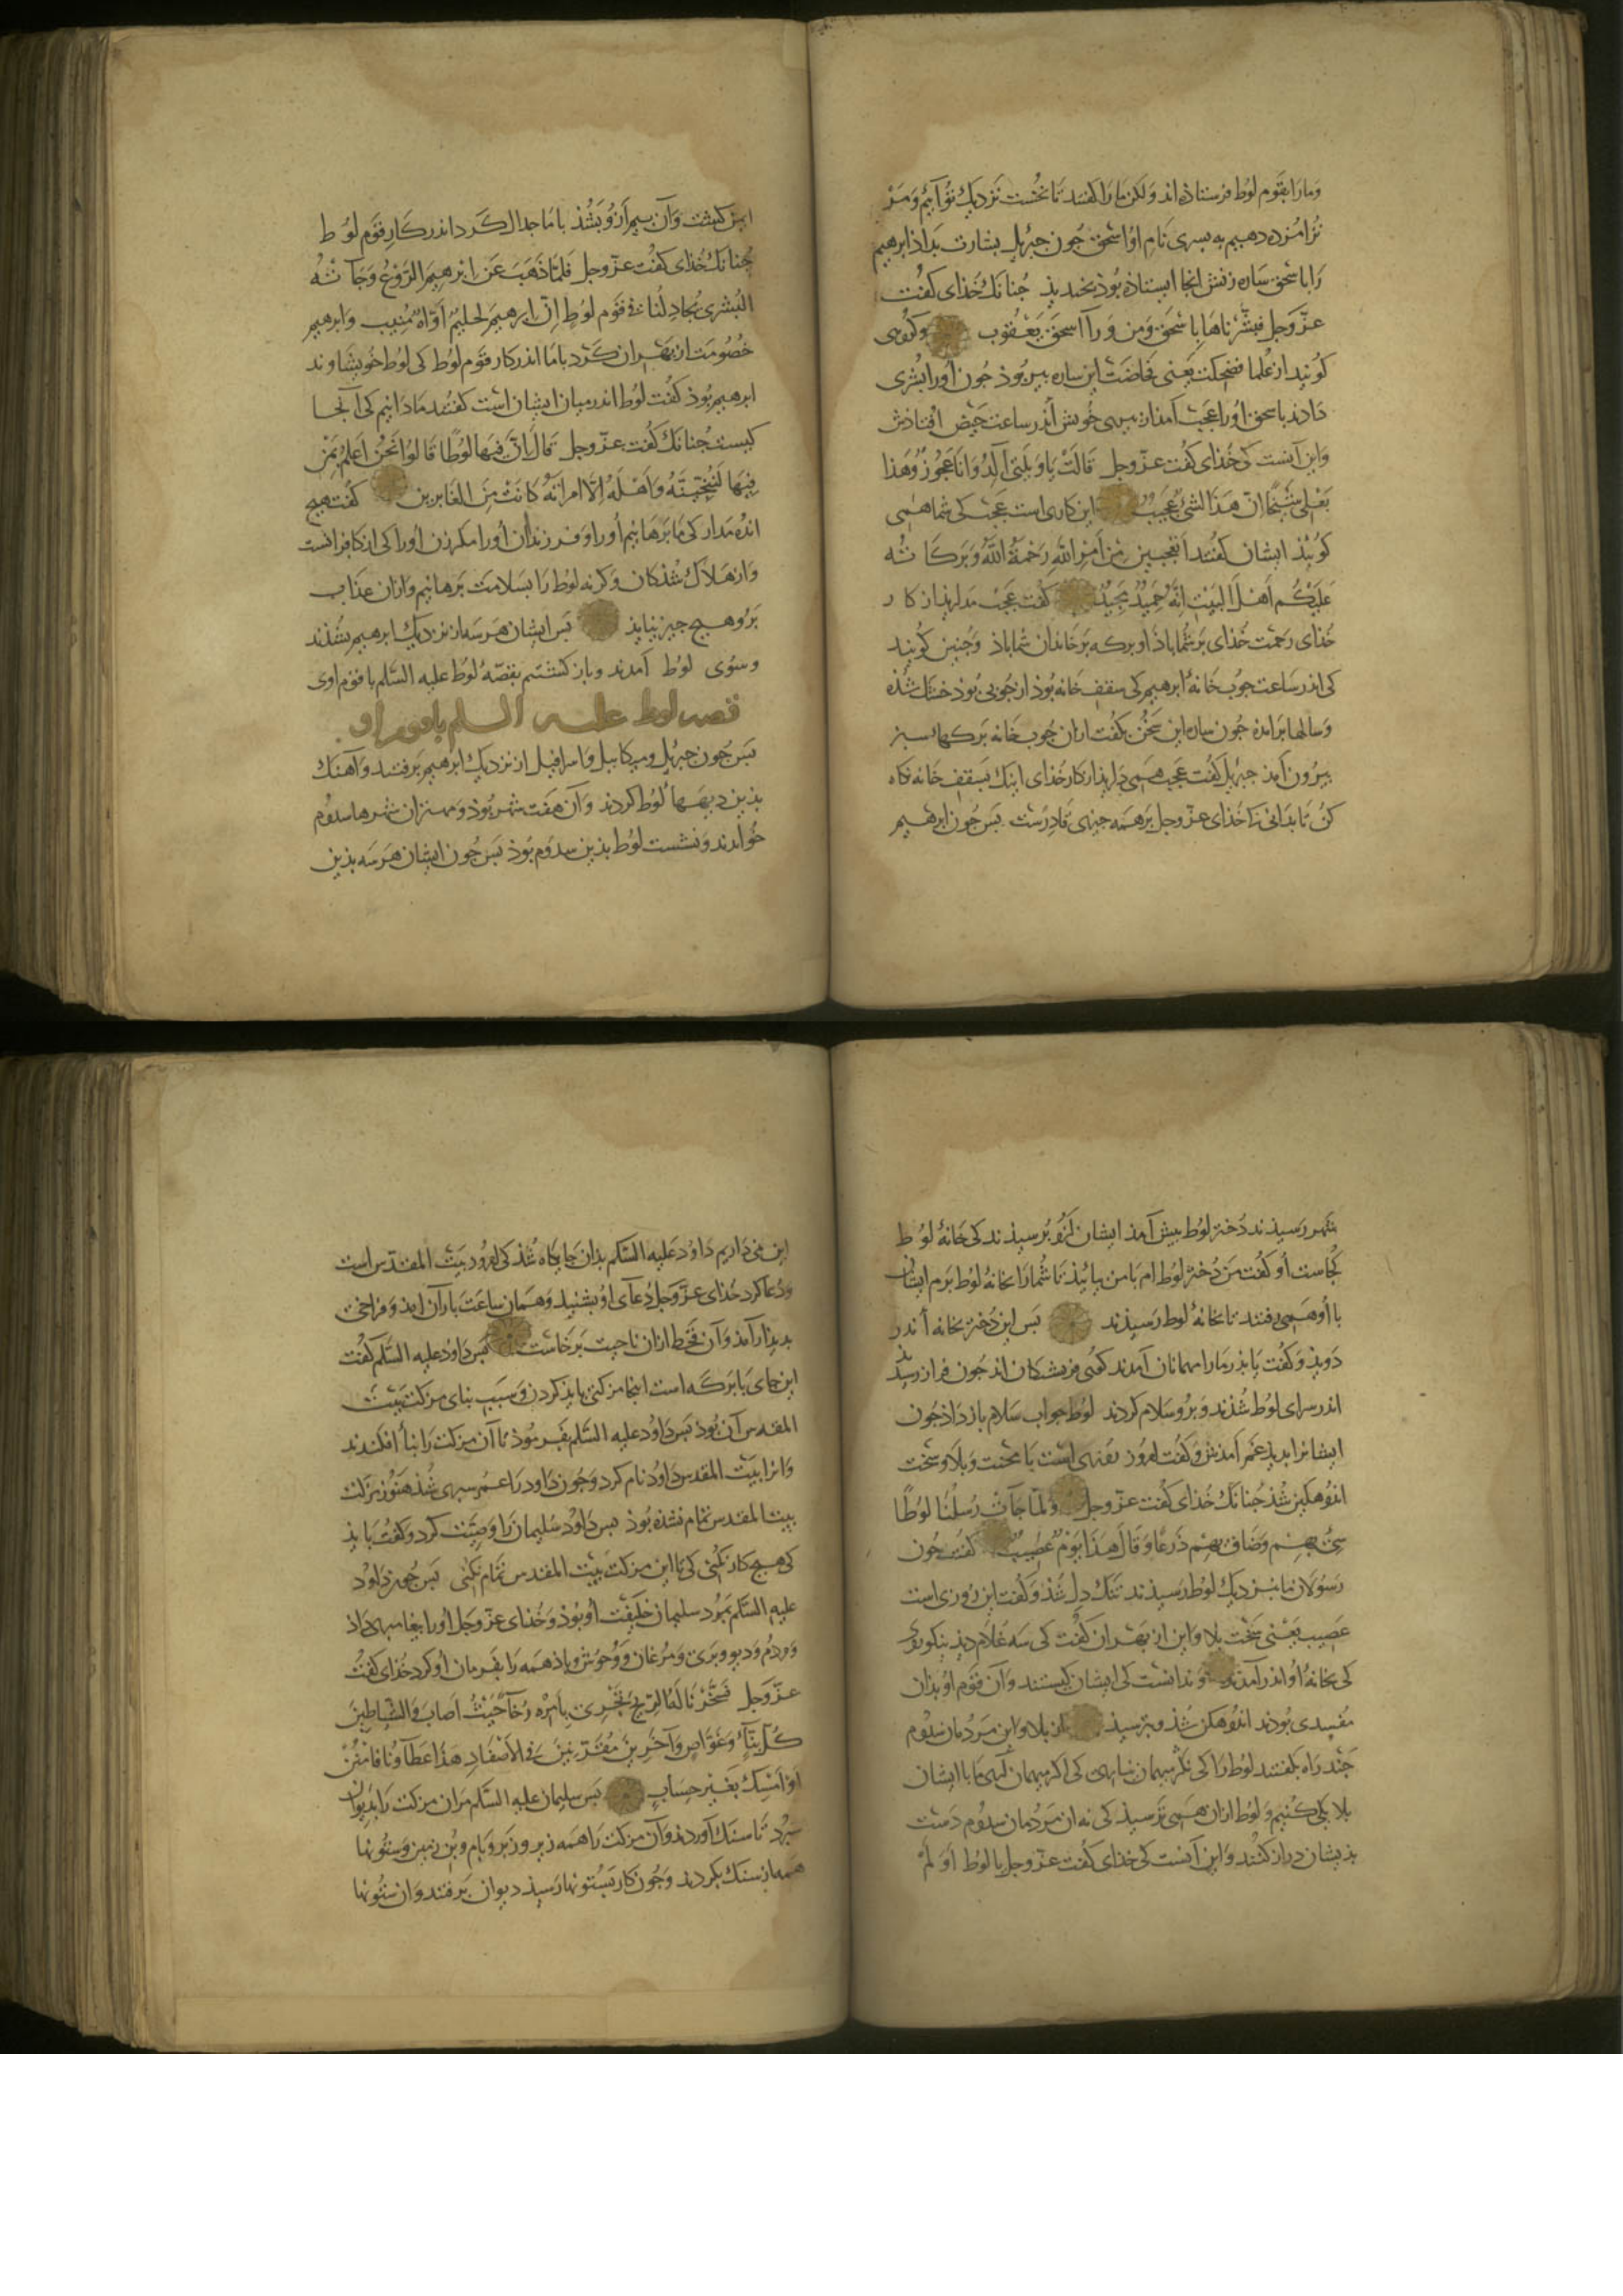 وما را بقوم لوط فرستاذه اند ولکن ما را کفتند تا نخست نزدیک تو آییم و مر
ترا مژده دهیم به پسری نام او اسحق جون جبریل بشارت بداذ ابرهیم
را باسحق ساره زنش انجا ایستاذه بوذ بخندیذ جنانک خذای کفت
عز وجل فبشرناها باسحق ومن ورآ اسحق یعقوب وکروهی
کویند از علما فضحکت یعنی فحاضت این ساره پیر بوذ جون او را بشری
داذند باسحق او را عجب آمد از پیری خویش اندر ساعت حیض افتاذش
واین آنست کی خذای کفت عز وجل قالت یا ویلتی أألد وانا عجوز وهذا
بعلی شیخا ان هذا لشئ عجیب این کاری است عجب کی شما همی
کوییذ ایشان کفتند أتعجبین من أمر الله رحمة الله وبرکاته
علیکم أهل البیت انه حمید مجید کفت عجب مدار یذ از کار
خذای رحمت خذای بر شما باذ او برکه بر خاندان شما باذ وجنین کویند
کی اندر ساعت جوب خانهٔ ابرهیم کی سقف خانه بوذ از جوبی بوذ خشک شذه
وسالها بر امده جون ساره این سخن بکفت ازان جوب خانه برکهاء سبز
بیرون آمذ جبریل کفت عجب همی داریذ از کار خذای اینک بسقف خانه نکاه
کن تا بدانی که خذای عز وجل بر همه جیزی قادرست پس جون ابرهیم
ایمن کشت وآن بیم ازو بشذ با ما جدال کرد اندر کار قوم لوط
جنانک خذای کفت عز وجل فلما ذهب عن ابرهیم الروع وجآ ته
البشری یجادلنا فی قوم لوط ان ابرهیم لحلیم أواه منیب وابرهیم
خصومت از بهر ان کرد با ما اندر کار قوم لوط کی لوط خویشاوند
ابرهیم بوذ کفت لوط اندر میان ایشان است کفتند ما دانیم کی آنجا
کیست جنانک کفت عز وجل قال ان فیها لوطا قالوا نحن أعلم بمن
فیها لننجینه وأهله الا امرأته کانت من الغابرین کفت هیج
انده مدار کی ما برهانیم او را و فرزندان او را مکر زن او را کی از کافرانست
واز هلاک شذکان وکرنه لوط را بسلامت برهانیم وازان عذاب
برو هیج جیز نیایذ پس ایشان هر سه از نزدیک ابرهیم بشذند
وسوی لوط آمدند وباز کشتیم بقصهٔ لوط علیه السلم با قوم اوی
قصه لوط علیه السلم با قوم او
پس جون جبریل ومیکاییل واسرافیل از نزدیک ابرهیم برفتند وآهنک
بذین دیهها لوط کردند وآن هفت شهر بوذ ومهتران شهرها سدوم
خواندند ونشست لوط بذین سدوم بوذ پس جون ایشان هر سه بذین
شهر رسیذند دختر لوط پیش آمذ ایشان ازو برسیذند کی خانهٔ لوط
کجاست او کفت من دختر لوط ام با من بیائیذ تا شما را بخانهٔ لوط برم ایشان
با او همی رفتند تا بخانهٔ لوط رسیذند پس این دختر بخانه أندر
دویذ وکفت یا پذر ما را مهمانان آمدند کوئی فریشتکان اند جون فراز رسیذند
اندر سرای لوط شذند وبرو سلام کردند لوط جواب سلام باز داذ جون
ایشانرا بدیذ غم آمذش وکفت امروز روزی است با محنت وبلا وسخت
اندوهکین شذ جنانک خذای کفت عز وجل ولما جآت رسلنا لوطا
سئ بهم وضاق بهم ذرعا وقال هذا یوم عصیب کفت جون
رسولان ما بنزدیک لوط رسیذند تنک دل شذ وکفت این روزی است
عصیب یعنی سخت بلا واین از بهر ان کفت کی سه غلام دیذ نیکوروی
کی بخانهٔ او اندر آمدند وندانست کی ایشان کیستند وآن قوم او بذان
مفسدی بوذند اندوهکن شذ وبترسیذ از بلا واین مردمان سدوم
جند راه بکفتند لوط را کی نکر مهمان نیاری کی اکر مهمان آری ما با ایشان
بلا یکی کنیم ولوط ازان همی ترسیذ کی نه ان مردمان سدوم دست
بذیشان دراز کنند واین آنست کی خذای کفت عز وجل با لوط أو لم
داریم داود علیه السلم بذان جایکاه شذ کی امروز بیت المقدس است
ودعا کرد خذای عز وجل دعآی او بشنیذ وهمان ساعت باران امذ وفراخی
بدیذار آمذ وآن قحط ازان ناحیت برخاست پس داود علیه السلم کفت
این جای با برکه است اینجا مزکتی بایذ کردن وسبب بنای مزکت بیت
المقدس آن بوذ پس داود علیه السلم بفرموذ تا آن مزکت را بنا أفکندند
وانرا بیت المقدس داود نام کرد وجون داود را عمر سپری شذ هنوز مزکت
بیت المقدس تمام نشده بوذ پس داود سلیمان را وصیت کرد وکفت بایذ
کی هیج کار نکنی کی تا این مزکت بیت المقدس تمام نکنی پس جون داود
علیه السلم بمرد سلیمان خلیفت أو بوذ وخذای عز وجل أو را پیغامبری داذ
ومردم ودیو وبری ومرغان ووحوش وباذ همه را بفرمان أو کرد خذای کفت
عز وجل فسخرنا له الریح تجری بأمره رخآ حیث أصاب والشیاطین
کل بنآء وغواص وآخرین مقرنین فی الأصفاد هذا عطآونا فامنن
أو أمسک بغیر حساب پس سلیمان علیه السلم مران مزکت را بدیوان
سپرد تا سنک آوردند وآن مزکت را همه زیر وزبر وبام وبن زمین وستونها
همه از سنک بکردند وجون کار بستونها رسیذ دیوان برفتند وان ستونها